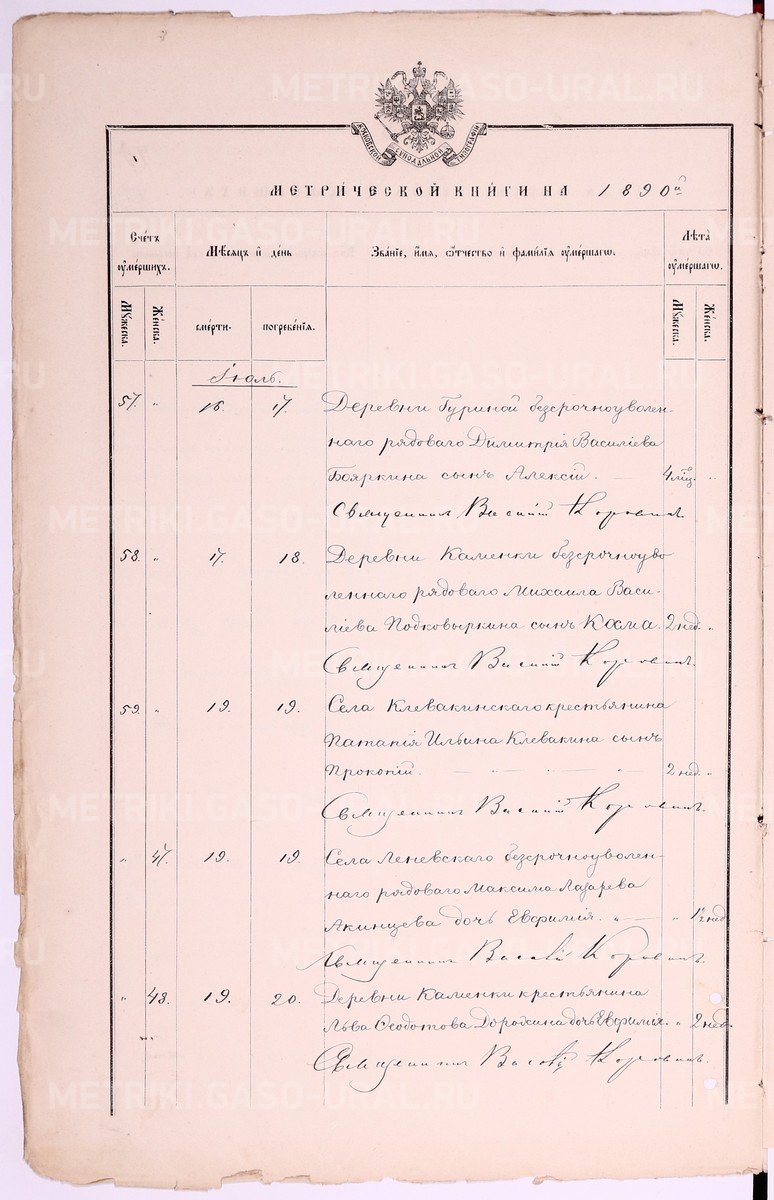 METRIKI.GASO-URAL.RU
МОСКОВСКОЙ СѴНОДАЛЬНОЙ ТИПОГРАФІИ
МЕТРИ́ЧЕСКОЙ КНИ́ГИ НА 1890й
Сче́тъ ᲂу҆ме́ршихъ.
Мѣ́сяцъ и҆ де́нь
Зва́нїе, и҆́мя, ѻ҆́тчество и҆ фами́лїя ᲂу҆ме́ршагѡ.
Лѣта̀ ᲂу҆ме́ршагѡ.
Мꙋ́жеска.
Же́нска.
сме́рти.
погребе́нїя.
Мꙋ́жеска.
Же́нска.
Іюль.
57. " 16. 17. Деревни Гуриной безсрочноуволен-
наго рядоваго Димитрія Василіева
Бояркина сынъ Алексій. — 4 мѣс. "
Священникъ Василій Коровинъ.
58. " 17. 18. Деревни Каменки безсрочноуво
леннаго рядоваго Михаила Васи-
ліева Подковыркина сынъ Косма. 2 нед. "
Священникъ Василій Коровинъ.
59. " 19. 19. Села Клевакинскаго крестьянина
Патапія Ильина Клевакина сынъ
Прокопій. — " — " — " 2 нед. "
Священникъ Василій Коровинъ.
" 47. 19. 19. Села Леневскаго безсрочноуволен-
наго рядоваго Максима Лазарева
Акинцева дочь Евфимія. " — " 1½ нед.
Священникъ Василій Коровинъ.
" 48. 19. 20. Деревни Каменки крестьянина
Льва Ѳеодотова Дорохина дочь Евфимія. " 2 нед.
Священникъ Василій Коровинъ.